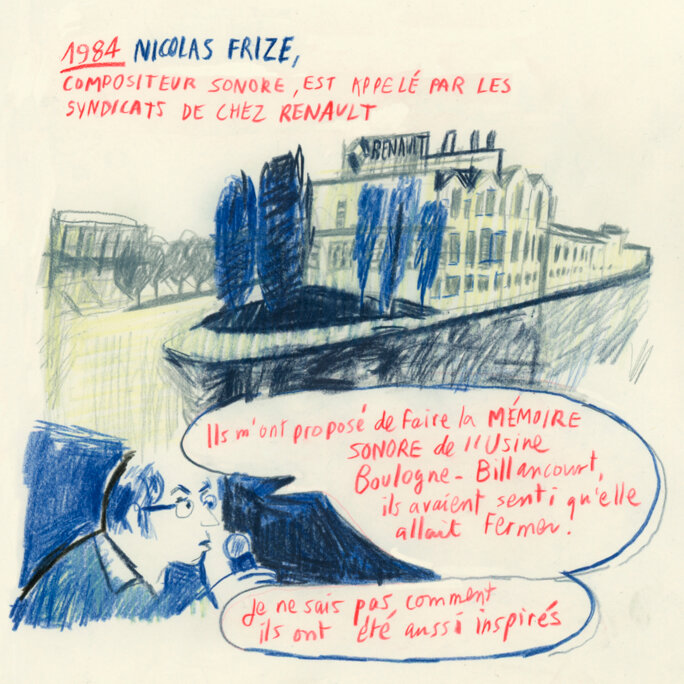 1984 NICOLAS FRIZE,
COMPOSITEUR SONORE, EST APPELÉ PAR LES
SYNDICATS DE CHEZ RENAULT
RENAULT
Ils m'ont proposé de faire la MÉMOIRE
SONORE de l'Usine
Boulogne-Billancourt,
ils avaient senti qu'elle
allait Fermer.
Je ne sais pas comment
ils ont été aussi inspirés